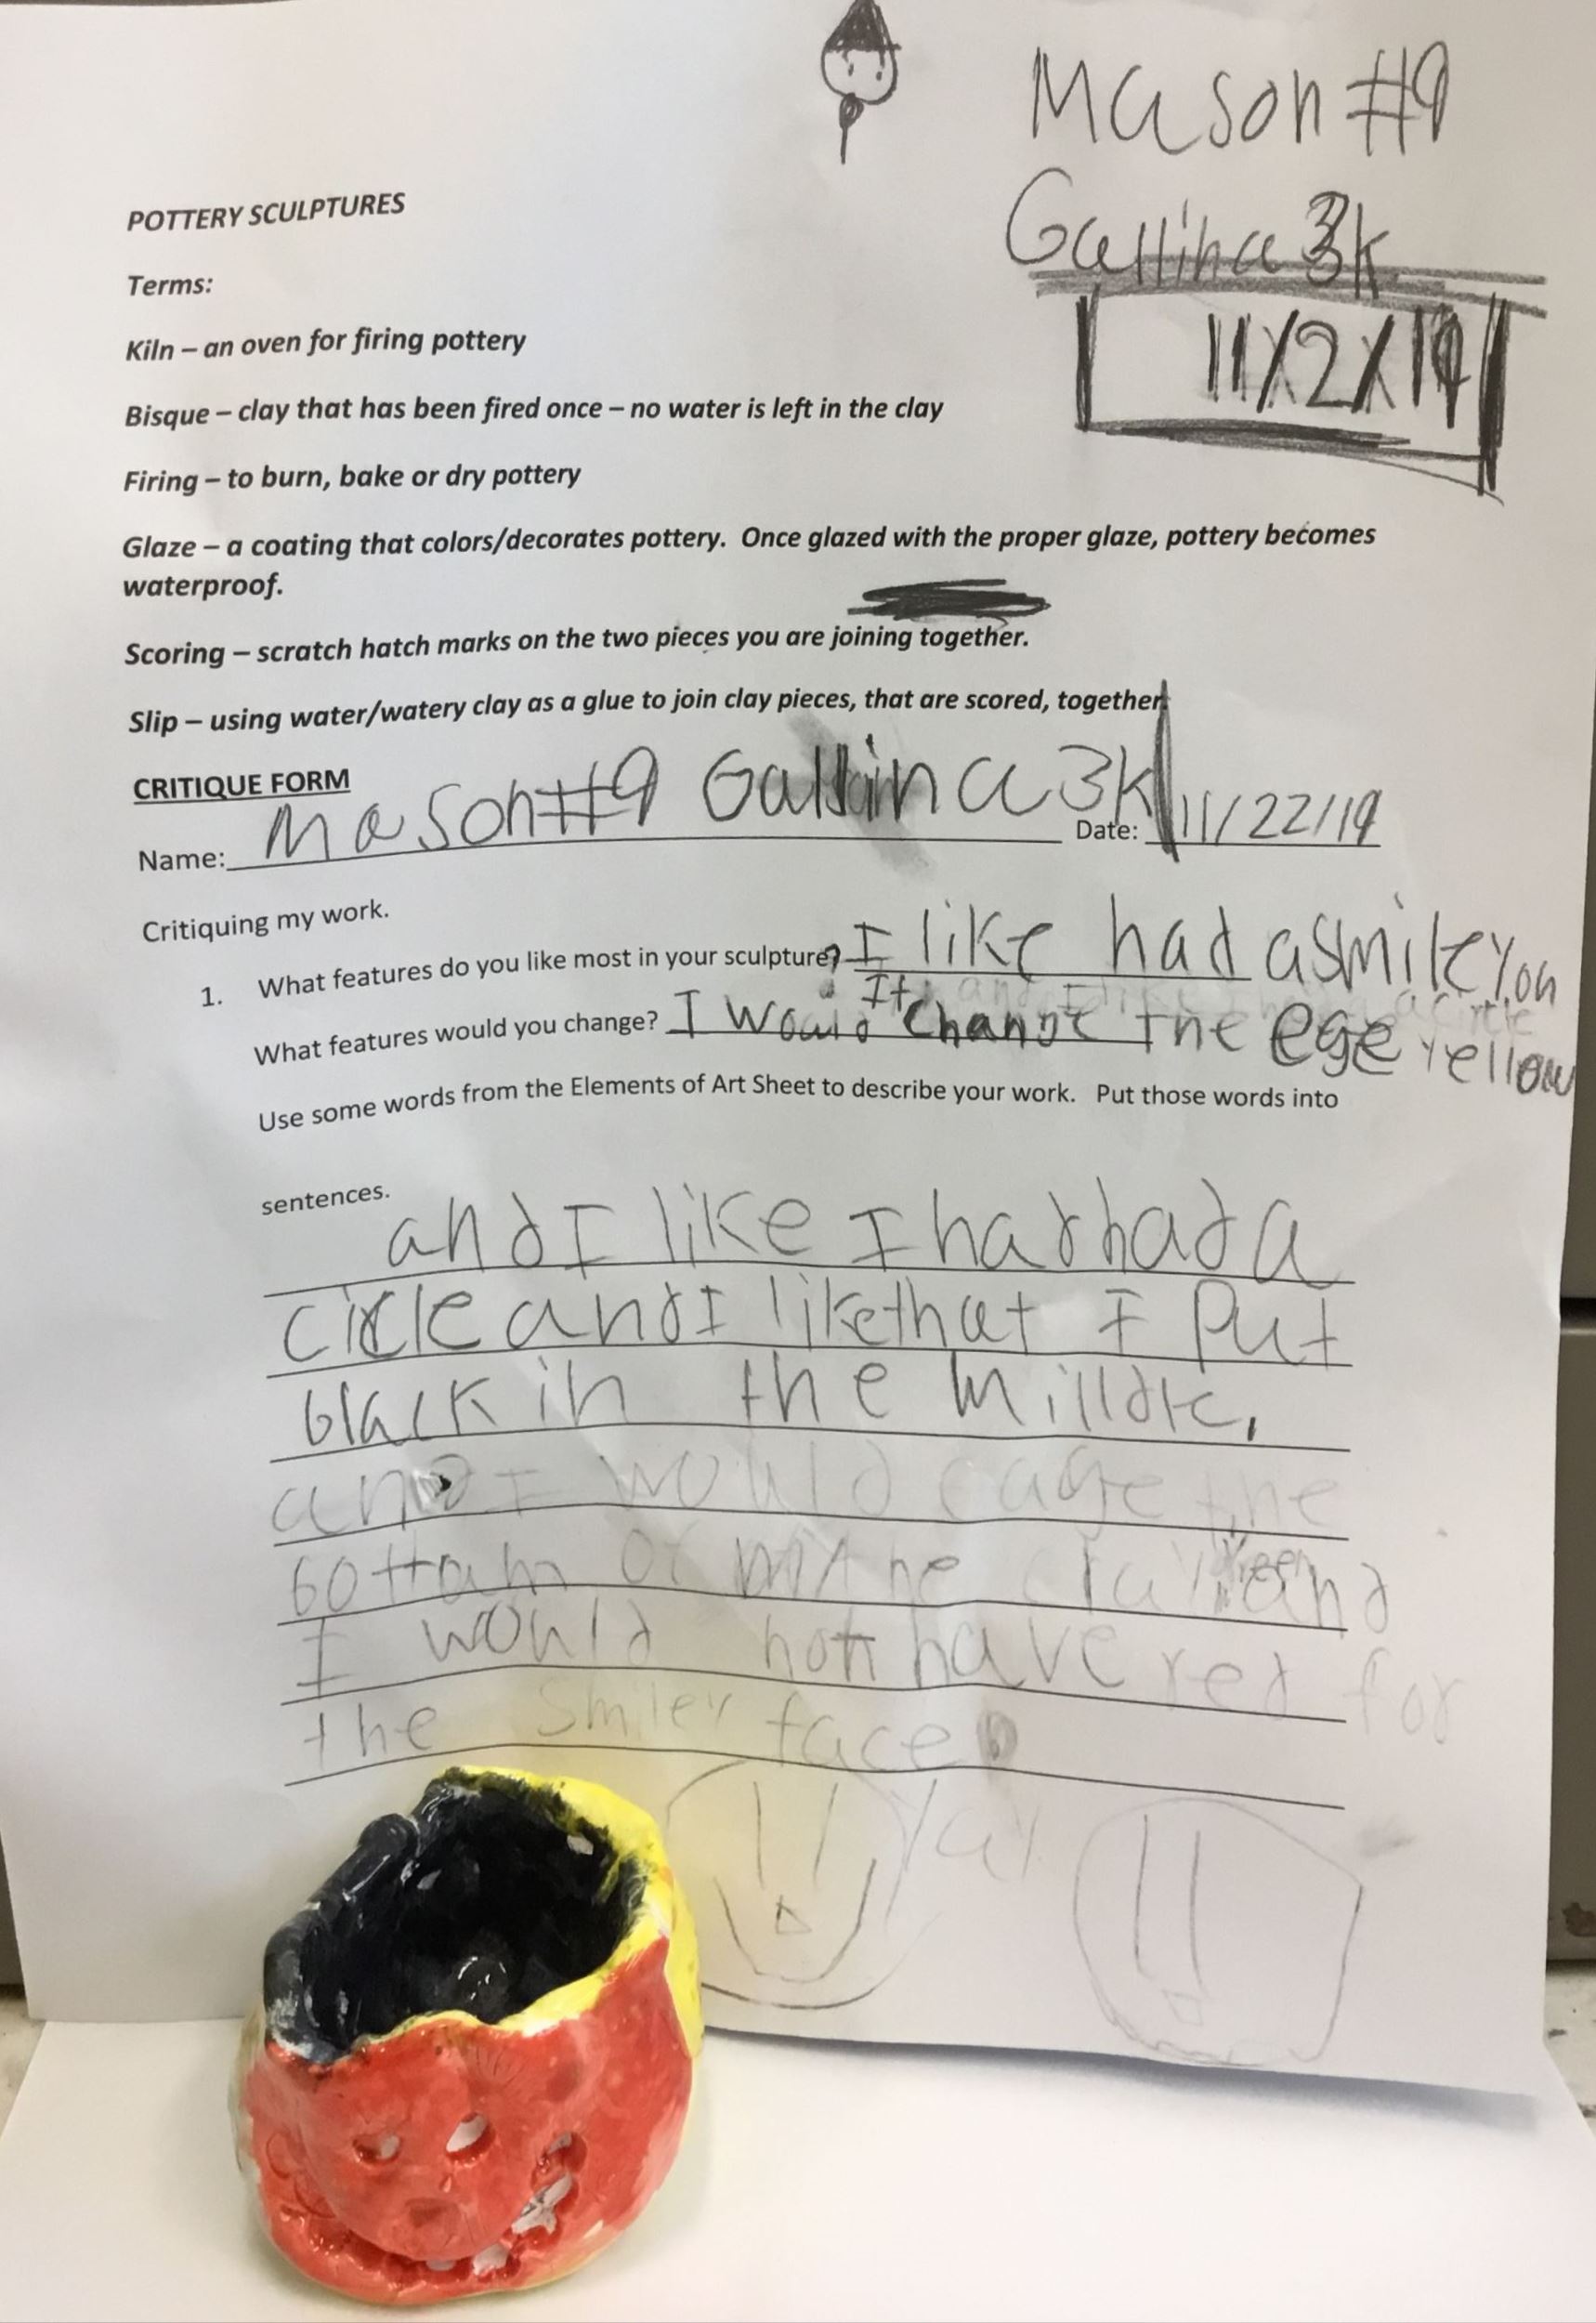 Mason #9
Gallina 3k
POTTERY SCULPTURES
Terms:
Kiln – an oven for firing pottery
Bisque – clay that has been fired once – no water is left in the clay
Firing – to burn, bake or dry pottery
Glaze – a coating that colors/decorates pottery. Once glazed with the proper glaze, pottery becomes
waterproof.
Scoring – scratch hatch marks on the two pieces you are joining together.
Slip – using water/watery clay as a glue to join clay pieces, that are scored, together.
CRITIQUE FORM
Name: Mason #9 Gallina 3k Date: 11/22/19
Critiquing my work.
1. What features do you like most in your sculpture? I like had a smiley on
It
What features would you change? I would change the ege yellow
Use some words from the Elements of Art Sheet to describe your work. Put those words into
sentences.
and I like I had had a
circle and I like that I put
black in the milldle.
and I would cage the
bottam of the and
I would not have red for
the smiley face
Yay